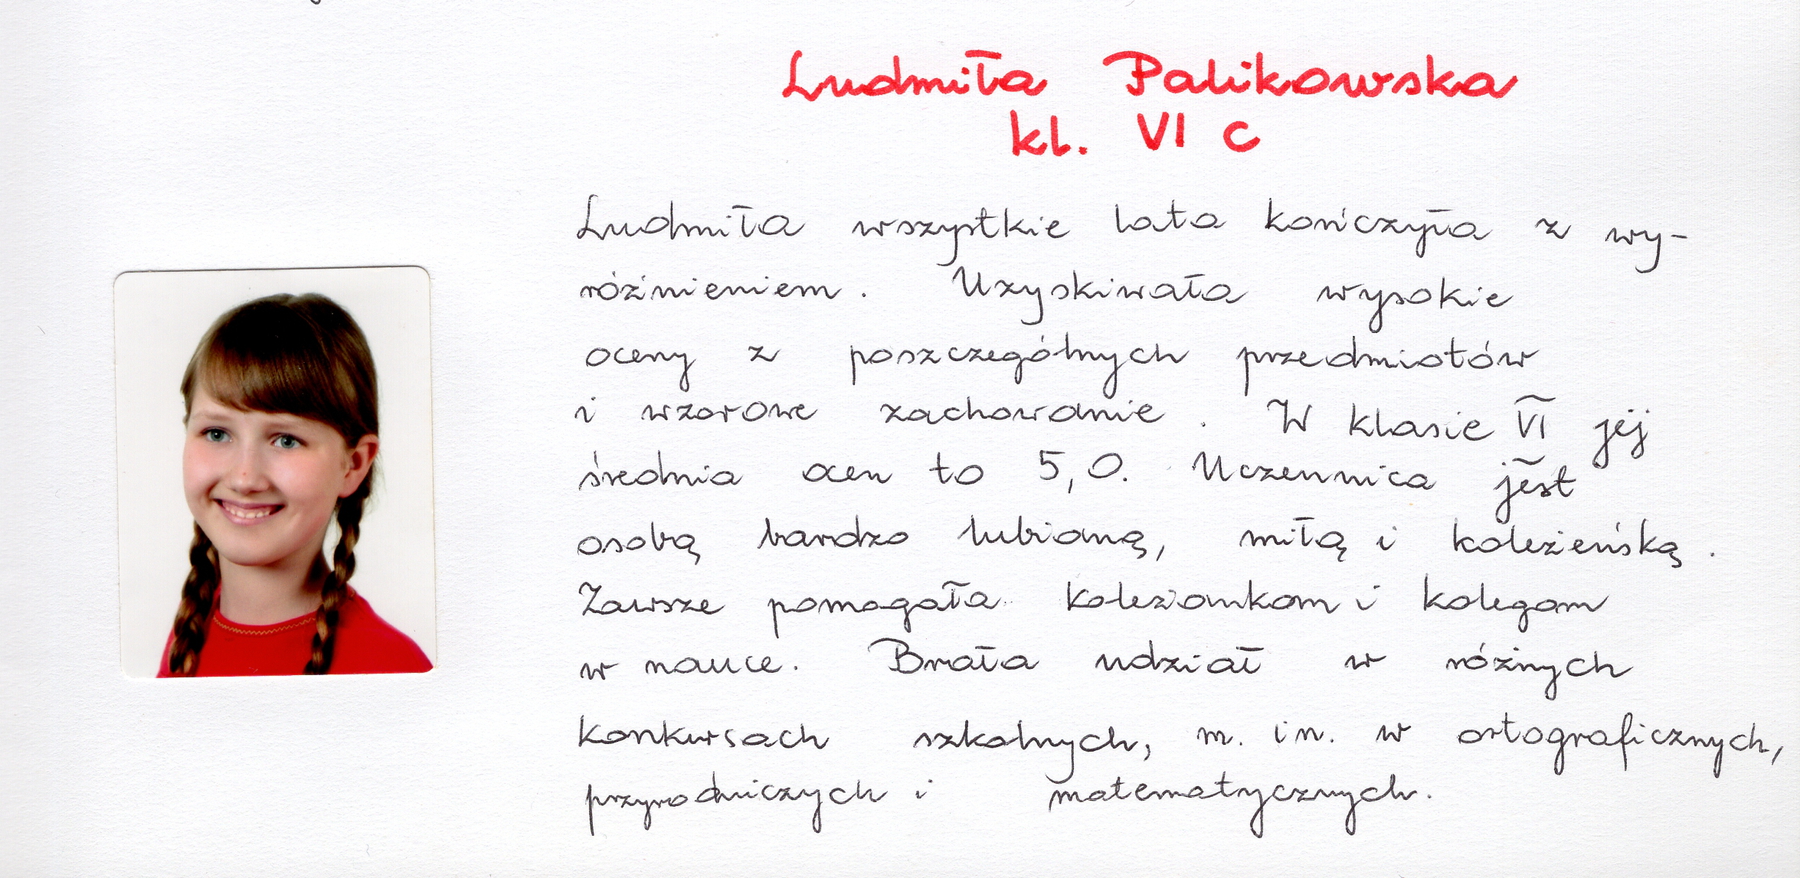 Ludmiła Palikowska
kl. VI c
Ludmiła wszystkie lata kończyła z wy-
różnieniem. Uzyskiwała wysokie
oceny z poszczególnych przedmiotów
i wzorowe zachowanie. W klasie VI jej
średnia ocen to 5,0. Uczennica jest
osobą bardzo lubianą, miłą i koleżeńską.
Zawsze pomagała koleżankom i kolegom
w nauce. Brała udział w różnych
konkursach szkolnych, m. in. w ortograficznych,
przyrodniczych i matematycznych.